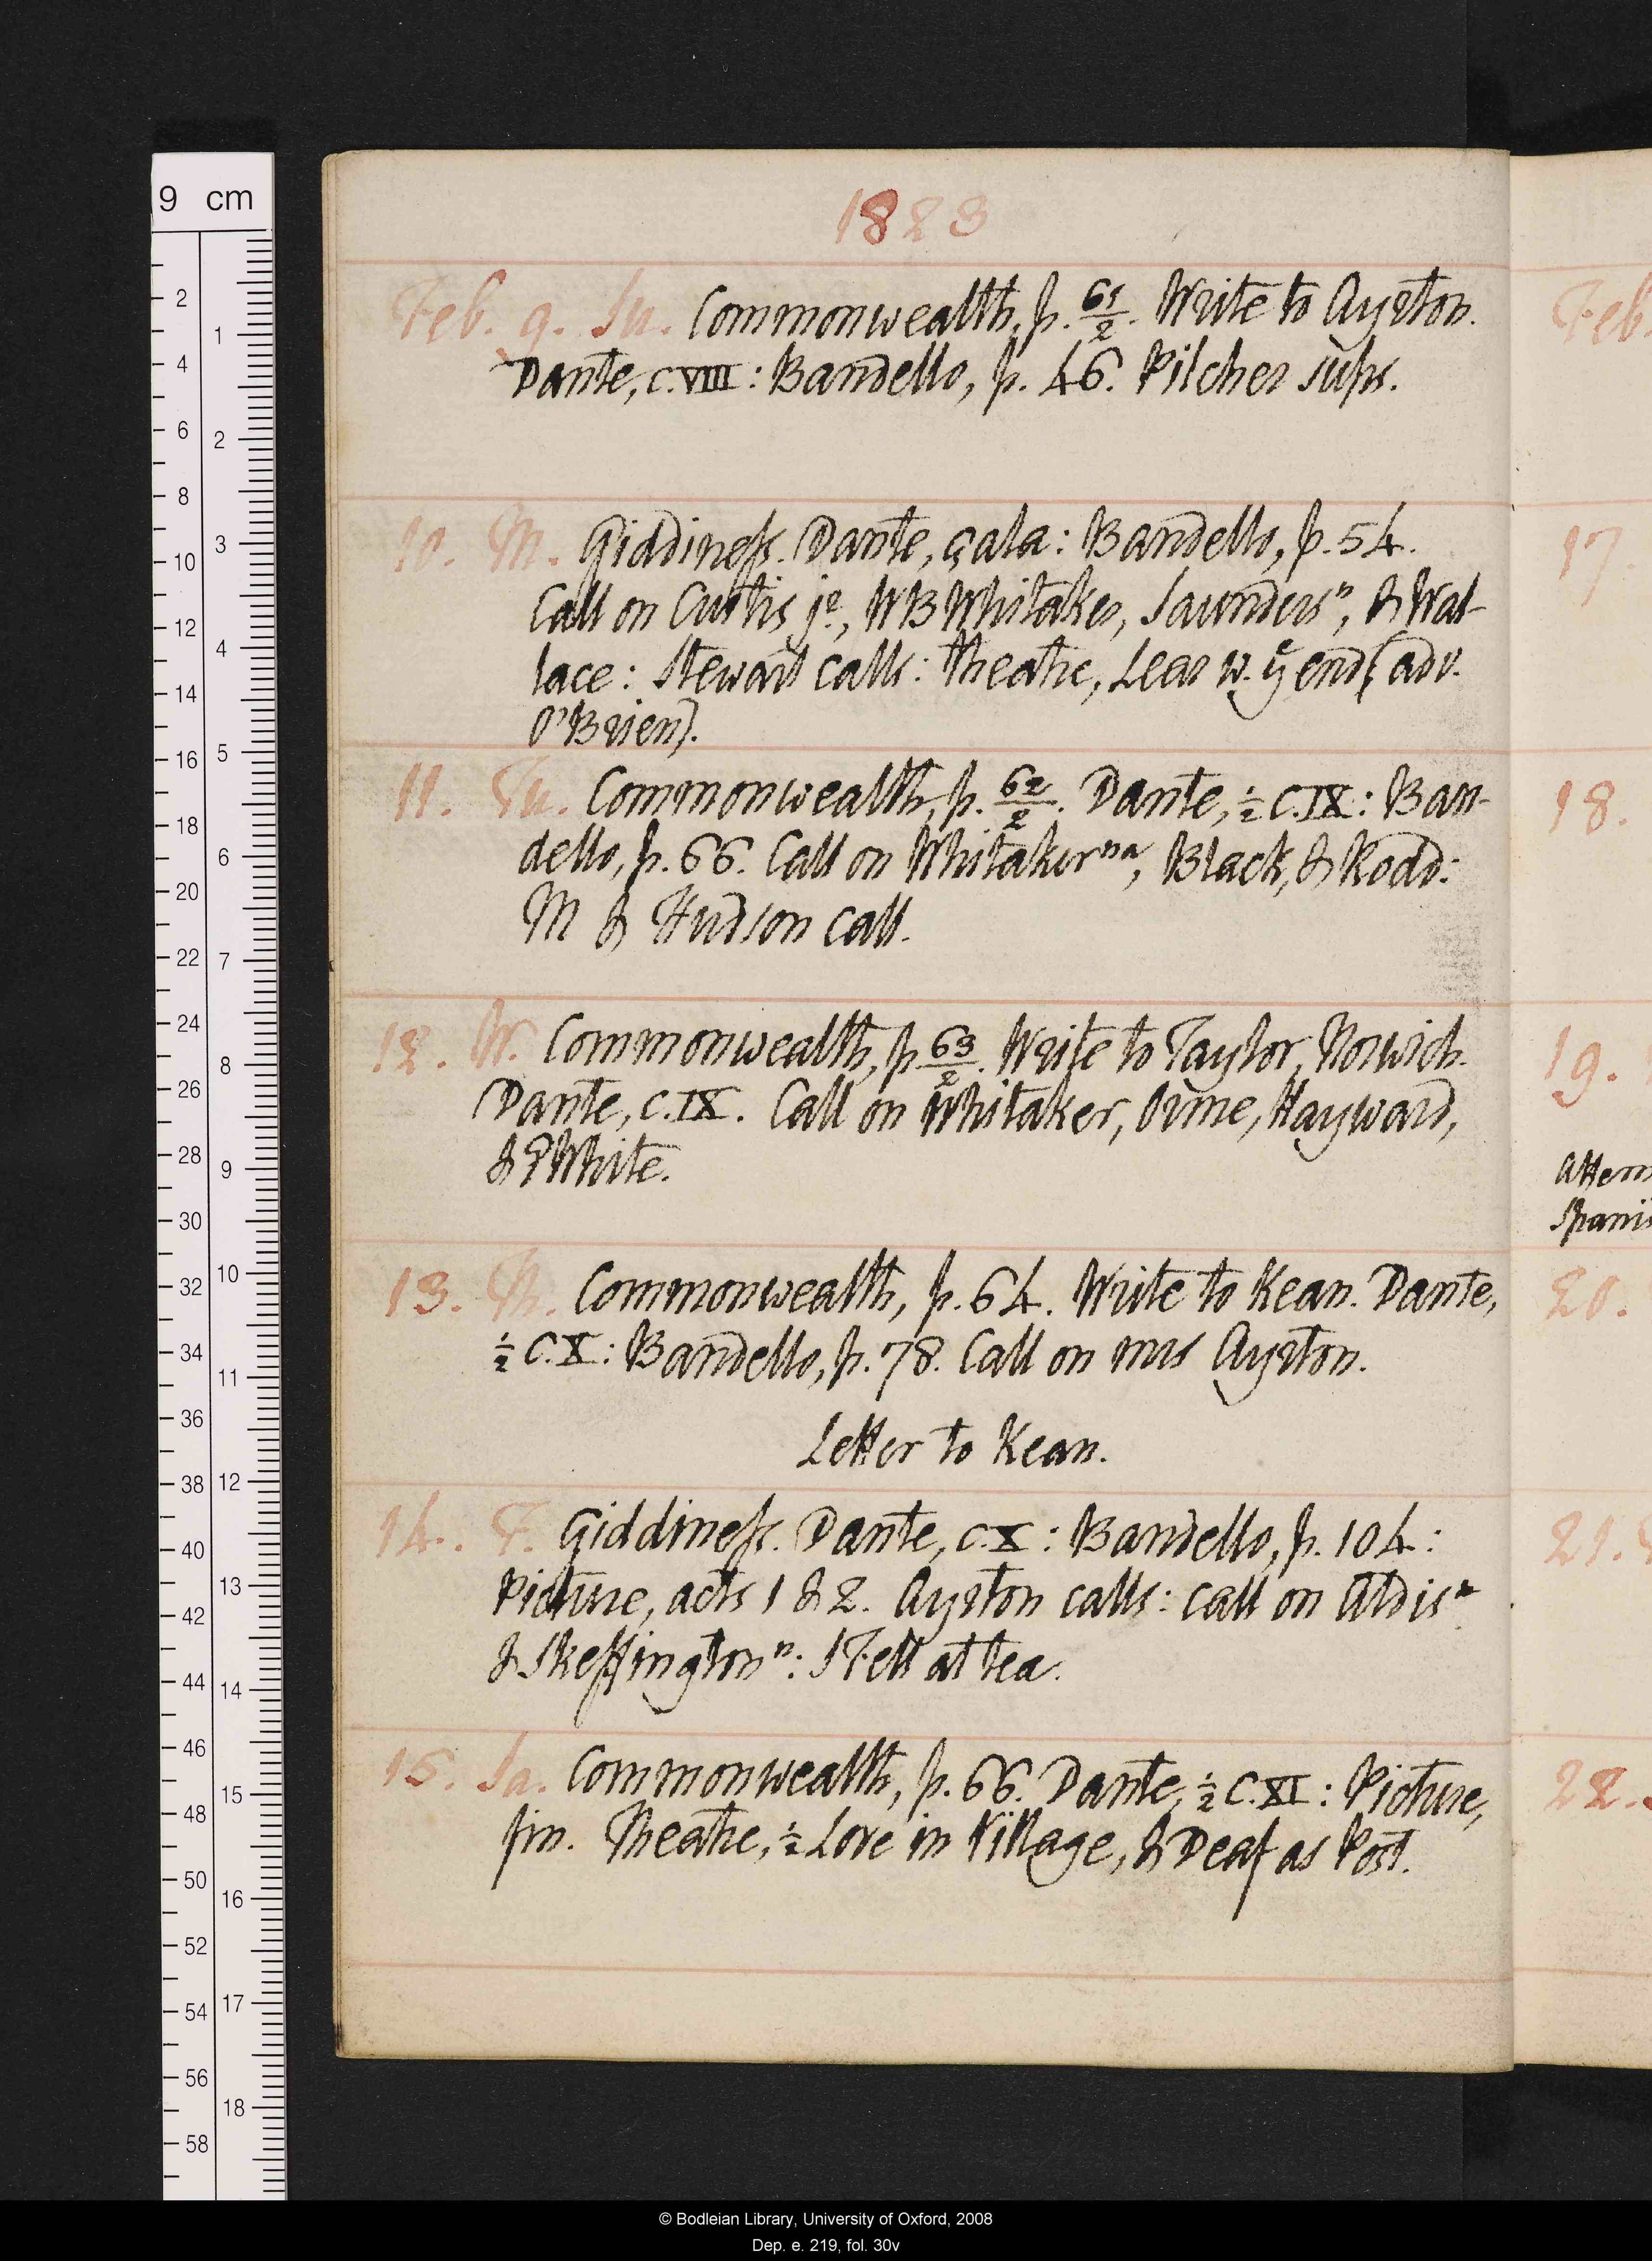 1823
Feb. 9. Su. Commonwealth, p. 61/2. Write to Ayrton.
Dante, c. VIII: Bandello, p. 46. Pilcher sups.
10. M. Giddineſs. Dante, çala: Bandello, p. 54.
Call on Curtis jr, WBWhitaker, Saundersn, & Wal-
lace: Stewart calls: theatre, Lear w. ye end (adv.
O'Brien).
11. Tu. Commonwealth, p. 62/2. Dante, ½ c. IX: Ban-
dello, p. 66. Call on Whitaker na, Black, & Rodd:
M & Hudson call.
12. W. Commonwealth, p 63/2. Write to Taylor, Norwich.
Dante, c. IX. Call on Whitaker, Orme, Hayward,
& PWhite.
13. Th. Commonwealth, p. 64. Write to Kean. Dante,
½ c. X: Bandello, p. 78. Call on mrs Ayrton.
Letter to Kean.
14. F. Giddineſs. Dante, c. X: Bandello, p. 104:
Picture, acts 1 & 2. Ayrton calls: call on Aldis
& Skeffington n: SFell at tea.
15. Sa. Commonwealth, p. 66. Dante, ½ c. XI: Picture,
fin. Theatre, ½ Love in Village, & Deaf as Post.
Feb
17.
18.
19.
Attem
Spani
20.
21.
22.
9 cm
2
4
6
8
10
12
14
16
18
20
22
24
26
28
30
32
34
36
38
40
42
44
46
48
50
52
54
56
58
1
2
3
4
5
6
7
8
9
10
11
12
13
14
15
16
17
18
© Bodleian Library, University of Oxford, 2008
Dep. e. 219, fol. 30v